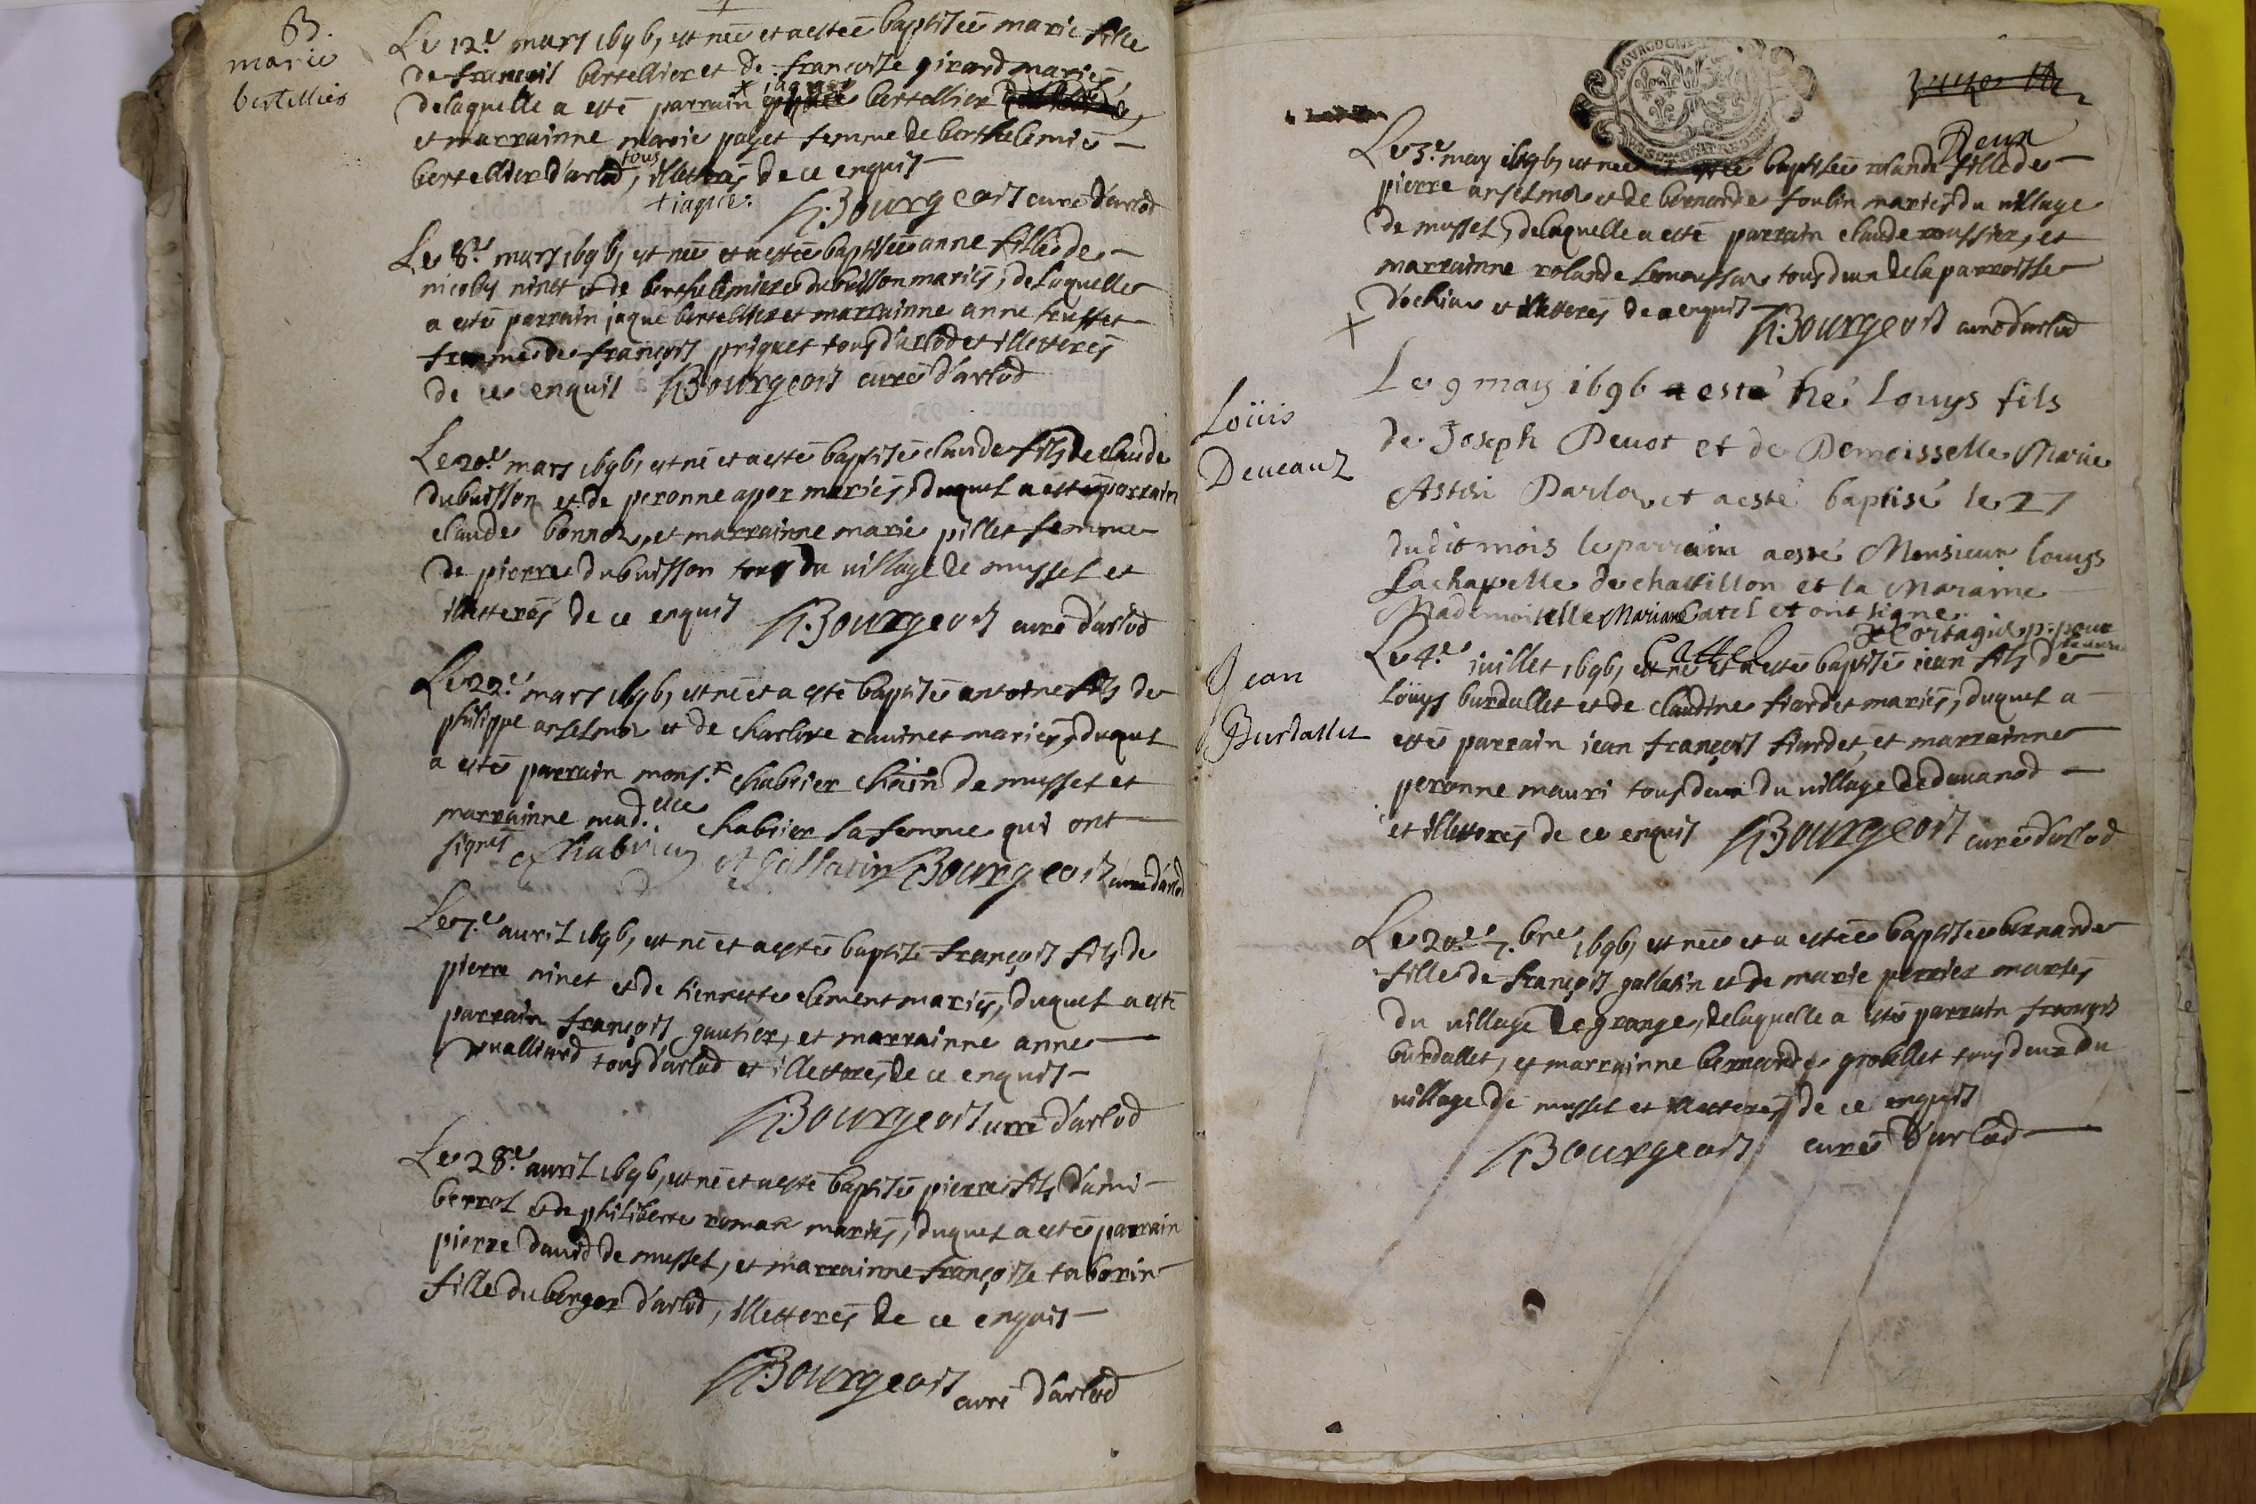 B.
marie
bertellier
Le 12.e mars 1696, est née et a estée baptisée marie fille
de françois bertellier et de françoise girard mariés,
delaquelle a esté parrain bertellier
et marrainne marie paget femme de berthelemie
bertellier d'arlod, tous illetterés de ce enquis
+ iaque.
Bourgeois curé d'arlod
Le 8.e mars 1696, est née et a estée baptisée anne fille de
nicolas ninet et de berthelemieze dubuisson mariés, de laquelle
a esté parrain jaque bertellier et marrainne anne
femme de françois priquet tous d'arlod et illetterés
de ce enquis Bourgeois curé d'arlod
Le 20.e mars 1696, est né et a esté baptisé claude fils de claude
dubuisson et de peronne apor mariés, duquel a esté parrain
claude bonnoz, et marrainne marie pillet femme
de pierre dubuisson tous du village de mussel et
illetterés de ce enquis Bourgeois curé d'arlod
Le 22.e mars 1696, est né et a esté baptisé antoine fils de
philippe anselmoz et de charlote ravinet mariés, duquel
a esté parrain mons.r chabrier de mussel et
marrainne mad.elle chabrier sa femme qui ont
signés Chabrier Gallatin Bourgeois curé d'arlod
Le 7.e avril 1696, est né et a estée baptisé françois fils de
pierre ninet et de tiennette clement mariés, duquel a esté
parrain françois gautier, et marrainne anne
tous d'arlod et illetterés de ce enquis
Bourgeois curé d'arlod
Le 28.e avril 1696, est né et a esté baptisé pierre fils d'ami
berrot et de philiberte roman mariés, duquel a esté parrain
pierre david de mussel, et marrainne françoise taborin
fille du berger d'arlod, illetterés de ce enquis
Bourgeois curé d'arlod
Deux
Le 3.e may 1696, est née et estée baptisée rolande fille de
pierre anselmoz et de bernarde foulin mariés du village
de mussel, delaquelle a esté parrain claude roussier, et
marrainne rolande tous deux de la parroisse
d'ochiaz et illetterés de ce enquis Bourgeois curé d'arlod
X
Loüis
Deveaux
Le 9 may 1696 a esté né Louys fils
de Joseph Devot et de Demoisselle Marie
Darlod et a esté baptisé le 27
dudit mois le parrain a esté Monsieur louys
Lachapelle de chattillon et la Maraine
Mademoiselle Mariane Catel et ont signe.
Cattel
Jean
Burdallet
Le 4.e iuillet 1696, est né et a estée baptisé iean fils de
loüys burdallet et de claudine fiardet mariés, duquel a
esté parrain iean françois fiardet, et marrainne
peronne mauri tous deux du village de
et illetterés de ce enquis Bourgeois curé d'arlod
Le 20.e 7.bre 1696, est née et a estée baptisée bernarde
fille de françois gallatin et de marie perrier mariés
du village de grange, delaquelle a esté parrain françois
burdallet, et marrainne bernarde grobellet tous deux du
village de mussel et illetterés de ce enquis
Bourgeois curé d'arlod